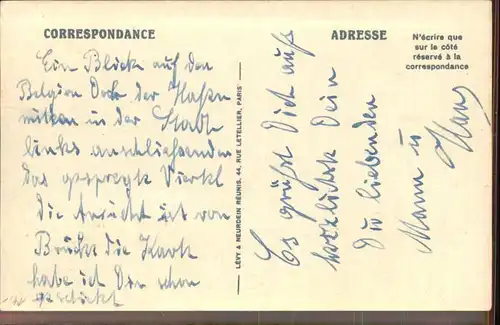 CORRESPONDANCE
ADRESSE
N'écrire que
sur le côté
réservé à la
correspondance
Ein Blick auf den
Belgien Dock der Hafen
mitten in der Stadt
links anschliessenden
Das gesprengte Viertel
Die Ansicht ist von
Brücke die Karte
habe ich Dir schon
geschickt
LÉVY & NEURDEIN RÉUNIS, 44, RUE LETELLIER, PARIS
Es grüßt Dich aufs
herzlichste Dein
Dich liebenden
Mann u
Hans